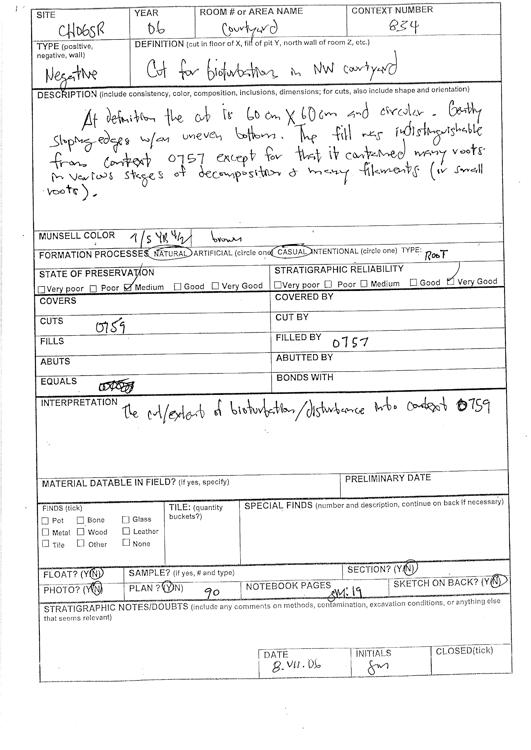 SITE YEAR ROOM # or AREA NAME CONTEXT NUMBER
CHDGSR 06 Courtyard 834
TYPE (positive, negative, wall) DEFINITION (cut in floor of X, fill of pit Y, north wall of room Z, etc.)
Negative Cut for bioturbation in NW courtyard
DESCRIPTION (include consistency, color, composition, inclusions, dimensions; for cuts, also include shape and orientation)
At definition the cut is 60cm X 60cm and circular. Gently
sloping edges w/an uneven bottom. The fill was indistinguishable
from context 0757 except for that it contained many roots
in various stages of decomposition & many filaments (or small
roots).
MUNSELL COLOR 7/5 YR 4/2 brown
FORMATION PROCESSES NATURAL ARTIFICIAL (circle one) CASUAL INTENTIONAL (circle one) TYPE: ROOT
STATE OF PRESERVATION STRATIGRAPHIC RELIABILITY
☐ Very poor ☐ Poor ☑ Medium ☐ Good ☐ Very Good ☐ Very poor ☐ Poor ☐ Medium ☐ Good ☑ Very Good
COVERS COVERED BY
CUTS 0759 CUT BY
FILLS FILLED BY 0757
ABUTS ABUTTED BY
EQUALS BONDS WITH
INTERPRETATION The cut/extent of bioturbation/disturbance into context 0759
MATERIAL DATABLE IN FIELD? (if yes, specify) PRELIMINARY DATE
FINDS (tick) TILE: (quantity buckets?) SPECIAL FINDS (number and description, continue on back if necessary)
☐ Pot ☐ Bone ☐ Glass
☐ Metal ☐ Wood ☐ Leather
☐ Tile ☐ Other ☐ None
FLOAT? (Y/N) SAMPLE? (if yes, # and type) SECTION? (Y/N)
PHOTO? (Y/N) PLAN? (Y/N) 90 NOTEBOOK PAGES SM:19 SKETCH ON BACK? (Y/N)
STRATIGRAPHIC NOTES/DOUBTS (include any comments on methods, contamination, excavation conditions, or anything else
that seems relevant)
DATE INITIALS CLOSED(tick)
8.VII.06 SM